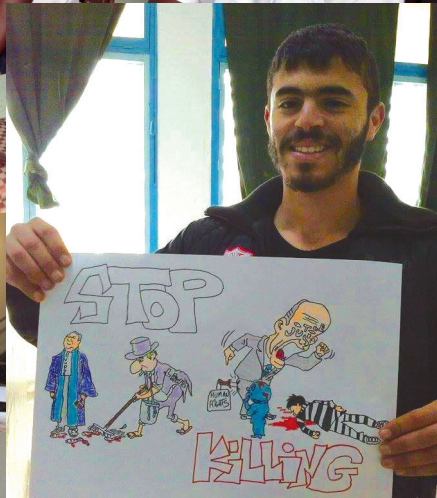 STOP
HUMAN
RIGHTS
KILLING